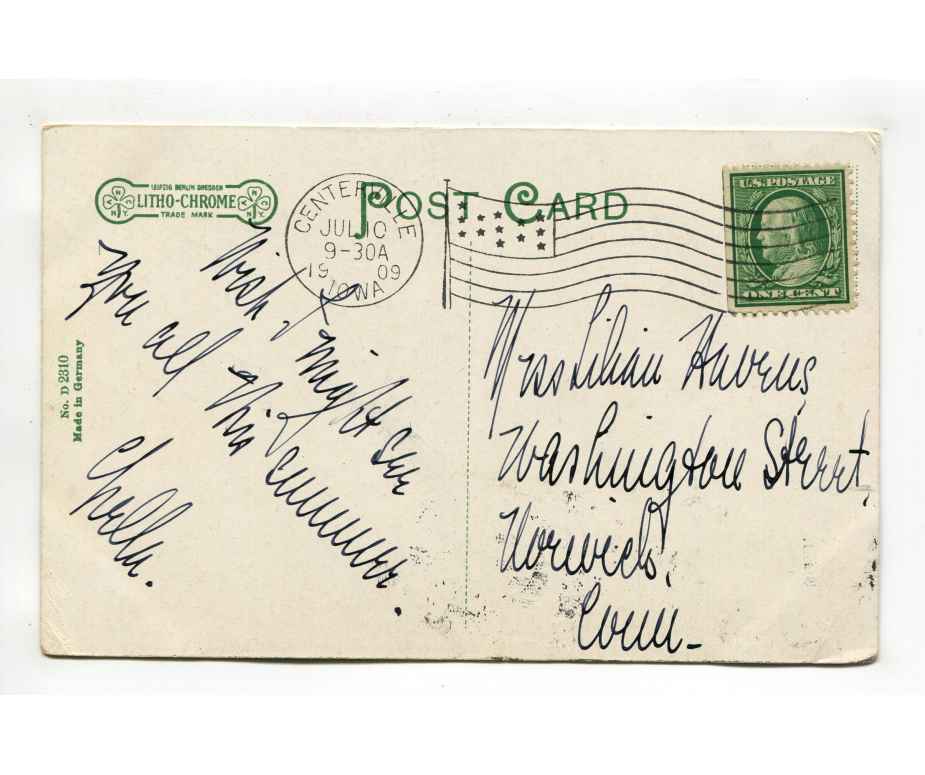 LEIPZIG BERLIN DRESDEN
LITHO-CHROME
TRADE MARK
N N
N Y
N N
N Y
POST CARD
CENTERVILLE
JUL 10
9-30A
19 09
IOWA
U.S. POSTAGE
ONE CENT
No. D 2310
Made in Germany
Wish I might see
you all this summer.
Mrs Lilian Havens,
Washington Street,
Norwich,
Conn-